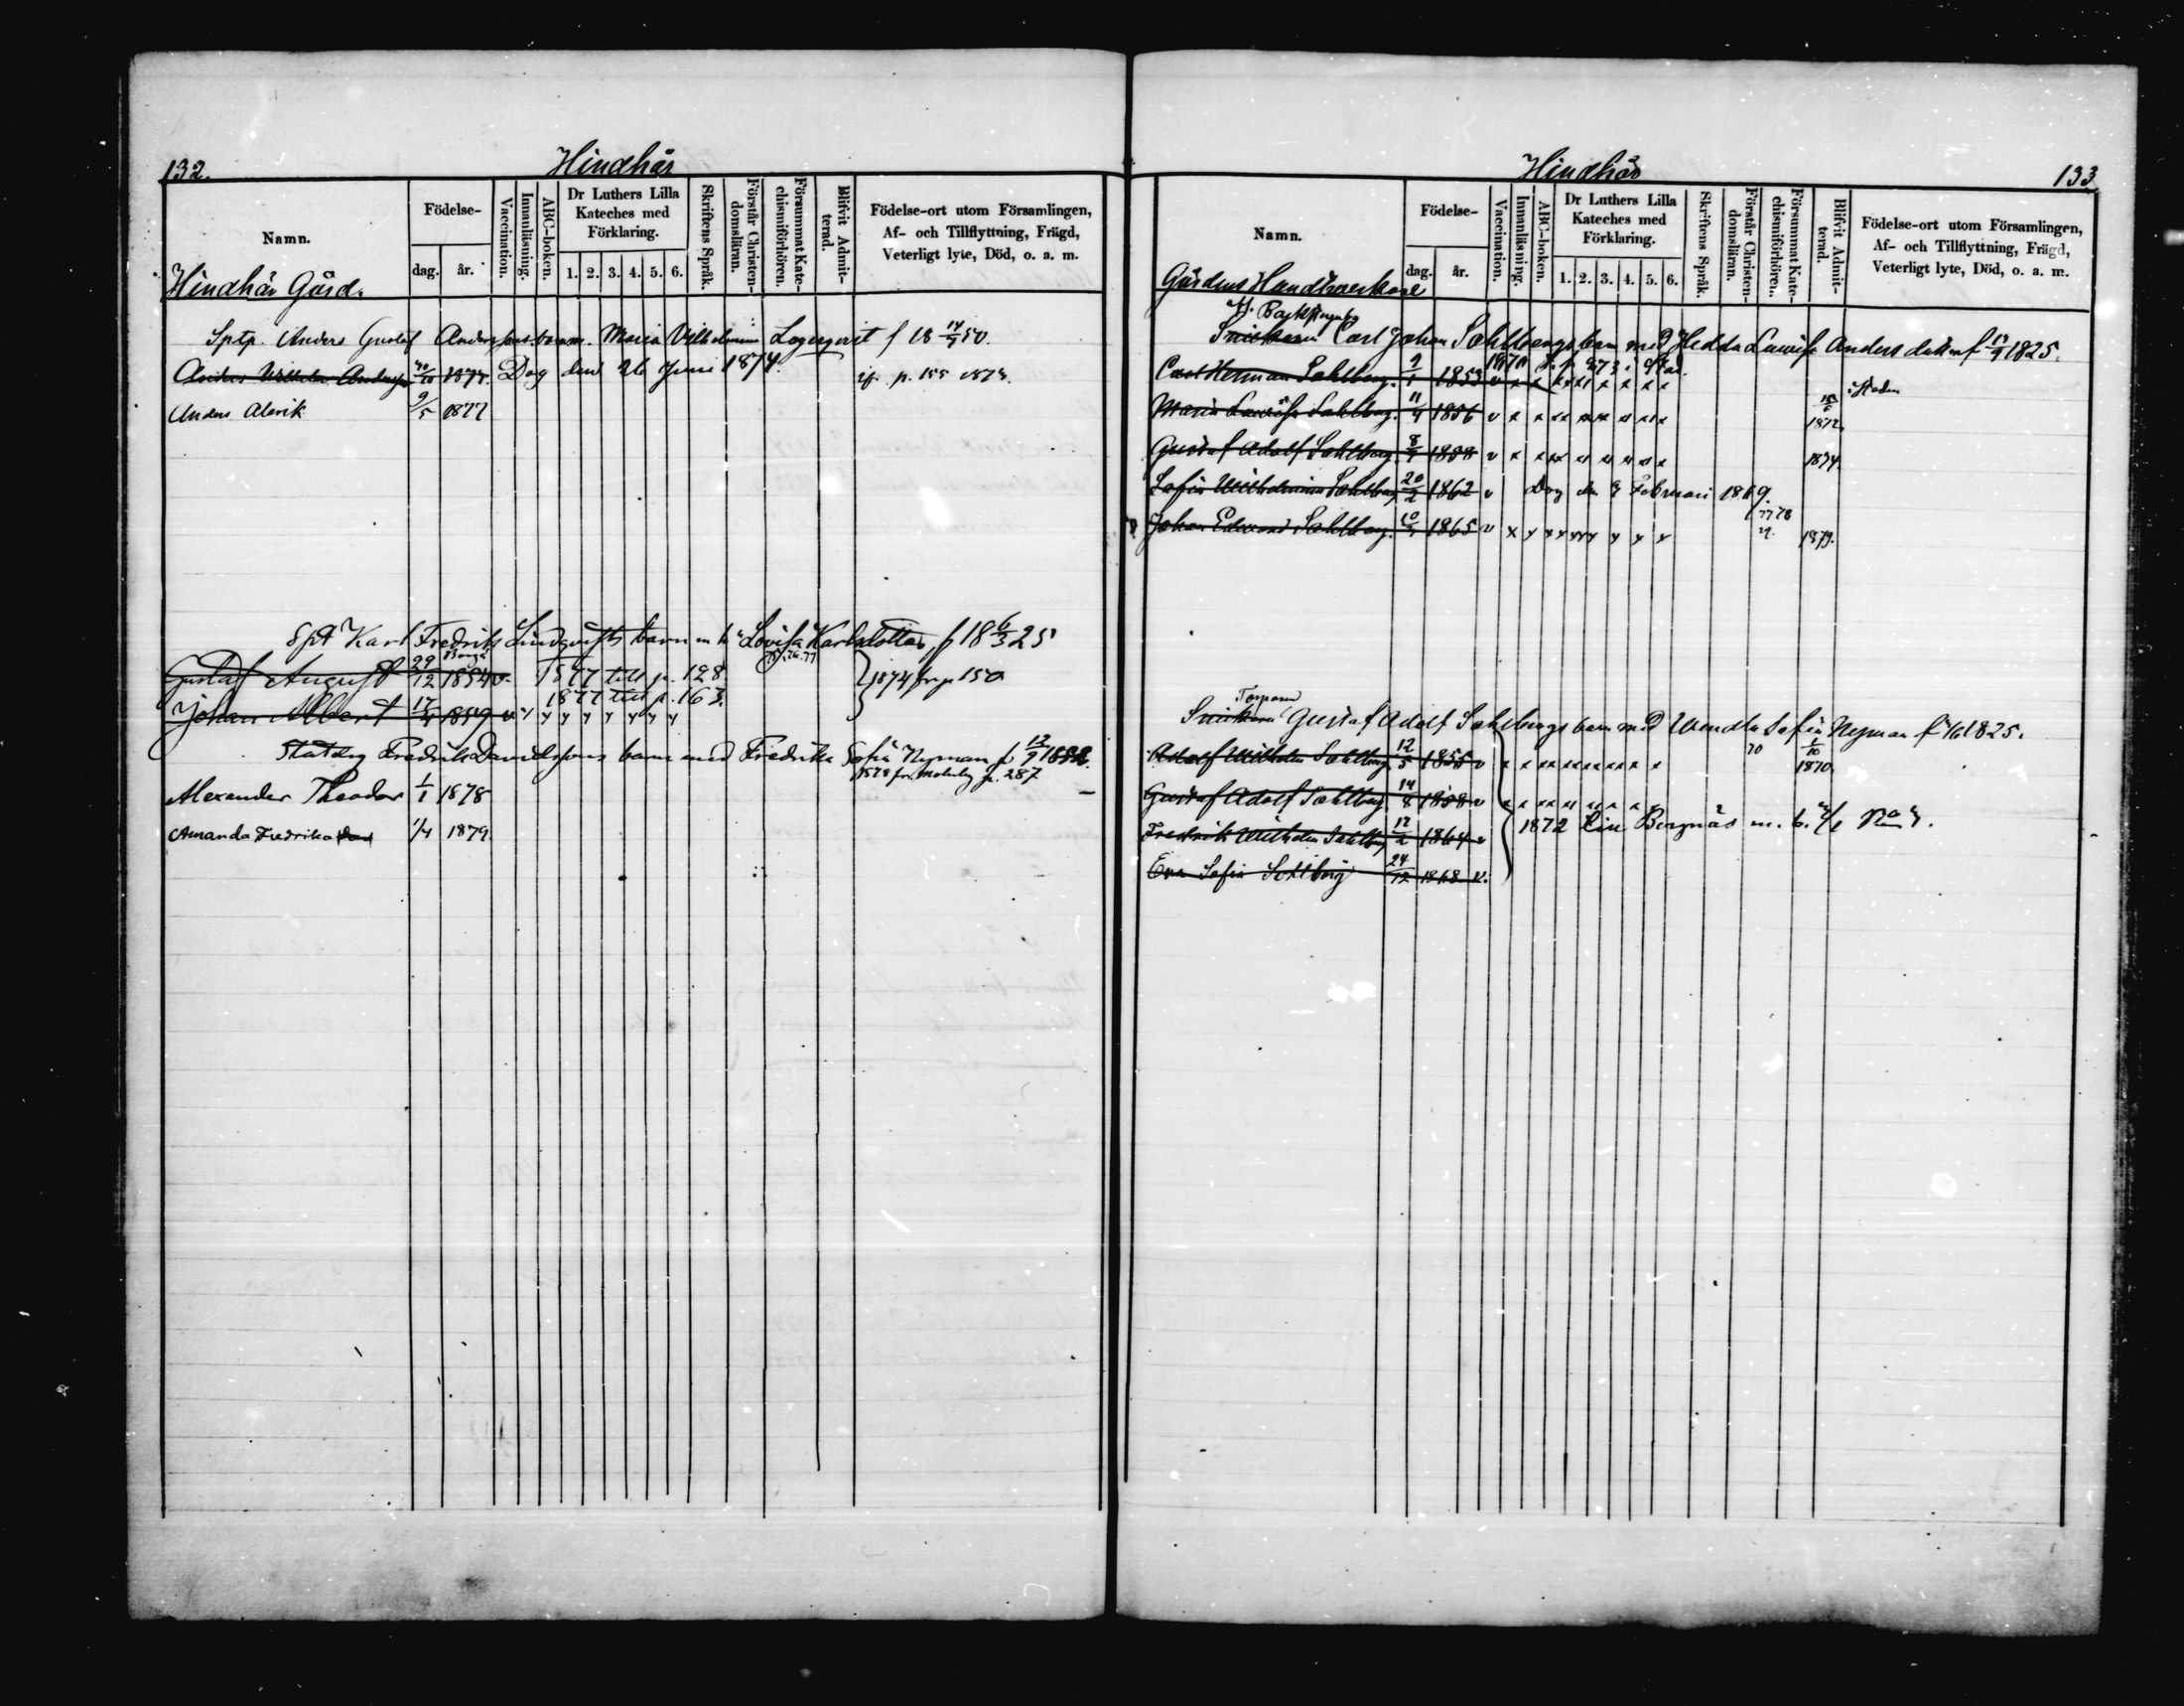 132.
Hindhår
Namn.
Födelse-
dag. år.
Vaccination.
Innanläsning.
ABC-boken.
Dr Luthers Lilla
Kateches med
Förklaring.
1. 2. 3. 4. 5. 6.
Skriftens Språk.
Förstår Christen-
domsläran.
Försummat Kate-
chismiförhören.
Blifvit Admit-
terad.
Födelse-ort utom Församlingen,
Af- och Tillflyttning, Frägd,
Veterligt lyte, Död, o. a. m.
Hindhår Gård.
Sptp. Anders Gustaf Anderssons barn m. Maria Vilhelmina Lagerqvist f 18 14/4 50
Anders Vilhelm Andersson 1873. Dog den 26 Juni 1874. p. 155 1873.
Anders Alarik 9/5 1877
Spt Karl Fredrik Lindqvists barn m h Lovisa Karlsdotter, f 18 6/3 25
75. 76. 77
Gustaf August 29/12 1854 v. Borgå 1877 till p. 128. } 1874 fr p 150
Johan Albert 17/4 1859 v y y y y y y y y 1877 till p. 163.
Statdrg Fredrik Davidssons barn med Fredrika Sofia Nyman f 12/9
1878 fr. p. 287
Alexander Theodor 1/1 1878
Amanda Fredrika 1/4 1879
Hindhår
133
Namn.
Födelse-
dag. år.
Vaccination.
Innanläsning.
ABC-boken.
Dr Luthers Lilla
Kateches med
Förklaring.
1. 2. 3. 4. 5. 6.
Skriftens Språk.
Förstår Christen-
domsläran.
Försummat Kate-
chismiförhören.
Blifvit Admit-
terad.
Födelse-ort utom Församlingen,
Af- och Tillflyttning, Frägd,
Veterligt lyte, Död, o. a. m.
Gårdens Handtverkare
Snickaren Carl Johan Sahlbergs barn med Hedda Lawisa Andersdotter f 1825.
Carl Herman Sahlberg. 9/1 1853 v x x x x x x x x 1870 p. 273 i Stad.
Maria Lawisa Sahlberg. 11/4 1856 v x x x x x x x x x 1872. i Staden
Gustaf Adolf Sahlberg. 1858 v x x x x x x x x 1874.
Sofia Wilhelmina Sahlberg 20/2 1862 v Dog den 9 Februari 1869.
Johan Edward Sahlberg. 1865 v x y y y y y y y y 77 78 79. 1879.
Torparen
Snickaren Gustaf Adolf Sahlbergs barn med Wendla Sofia Nyman f 1825.
Adolf Wilhelm Sahlberg 12/5 1855 v x x x x x x x x x x 70 1/10 1870.
Gustaf Adolf Sahlberg 14/8 1858 v x x x x x x x x x
Fredrik Wilhelm Sahlberg 12/2 1864 v 1872 till Borgnäs m. b. No 4.
Eva Sofia Sahlberg 24/12 1868. v.